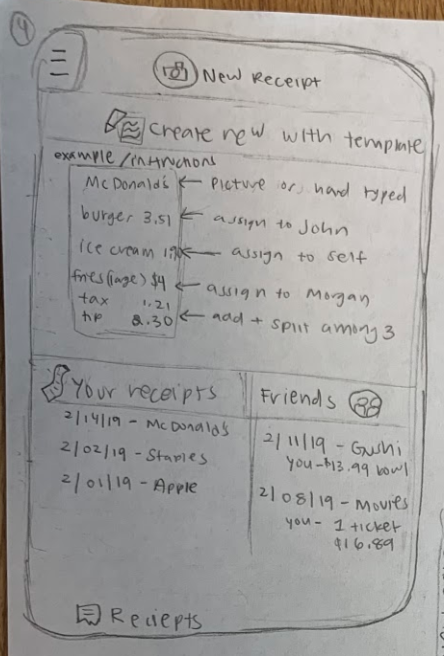 4
New Receipt
Create new with template
example/instructions
McDonald's ← Picture or hand typed
burger 3.51 ← assign to John
ice cream ← assign to self
fries (large) $4 ← assign to Morgan
tax 1.21
tip 2.30 ← add + split among 3
Your receipts
2/14/19 - McDonald's
2/02/19 - Staples
2/01/19 - Apple
Friends
2/11/19 - Gushi
you - $13.99 bowl
2/08/19 - Movies
you - 1 ticket
$16.89
Reciepts